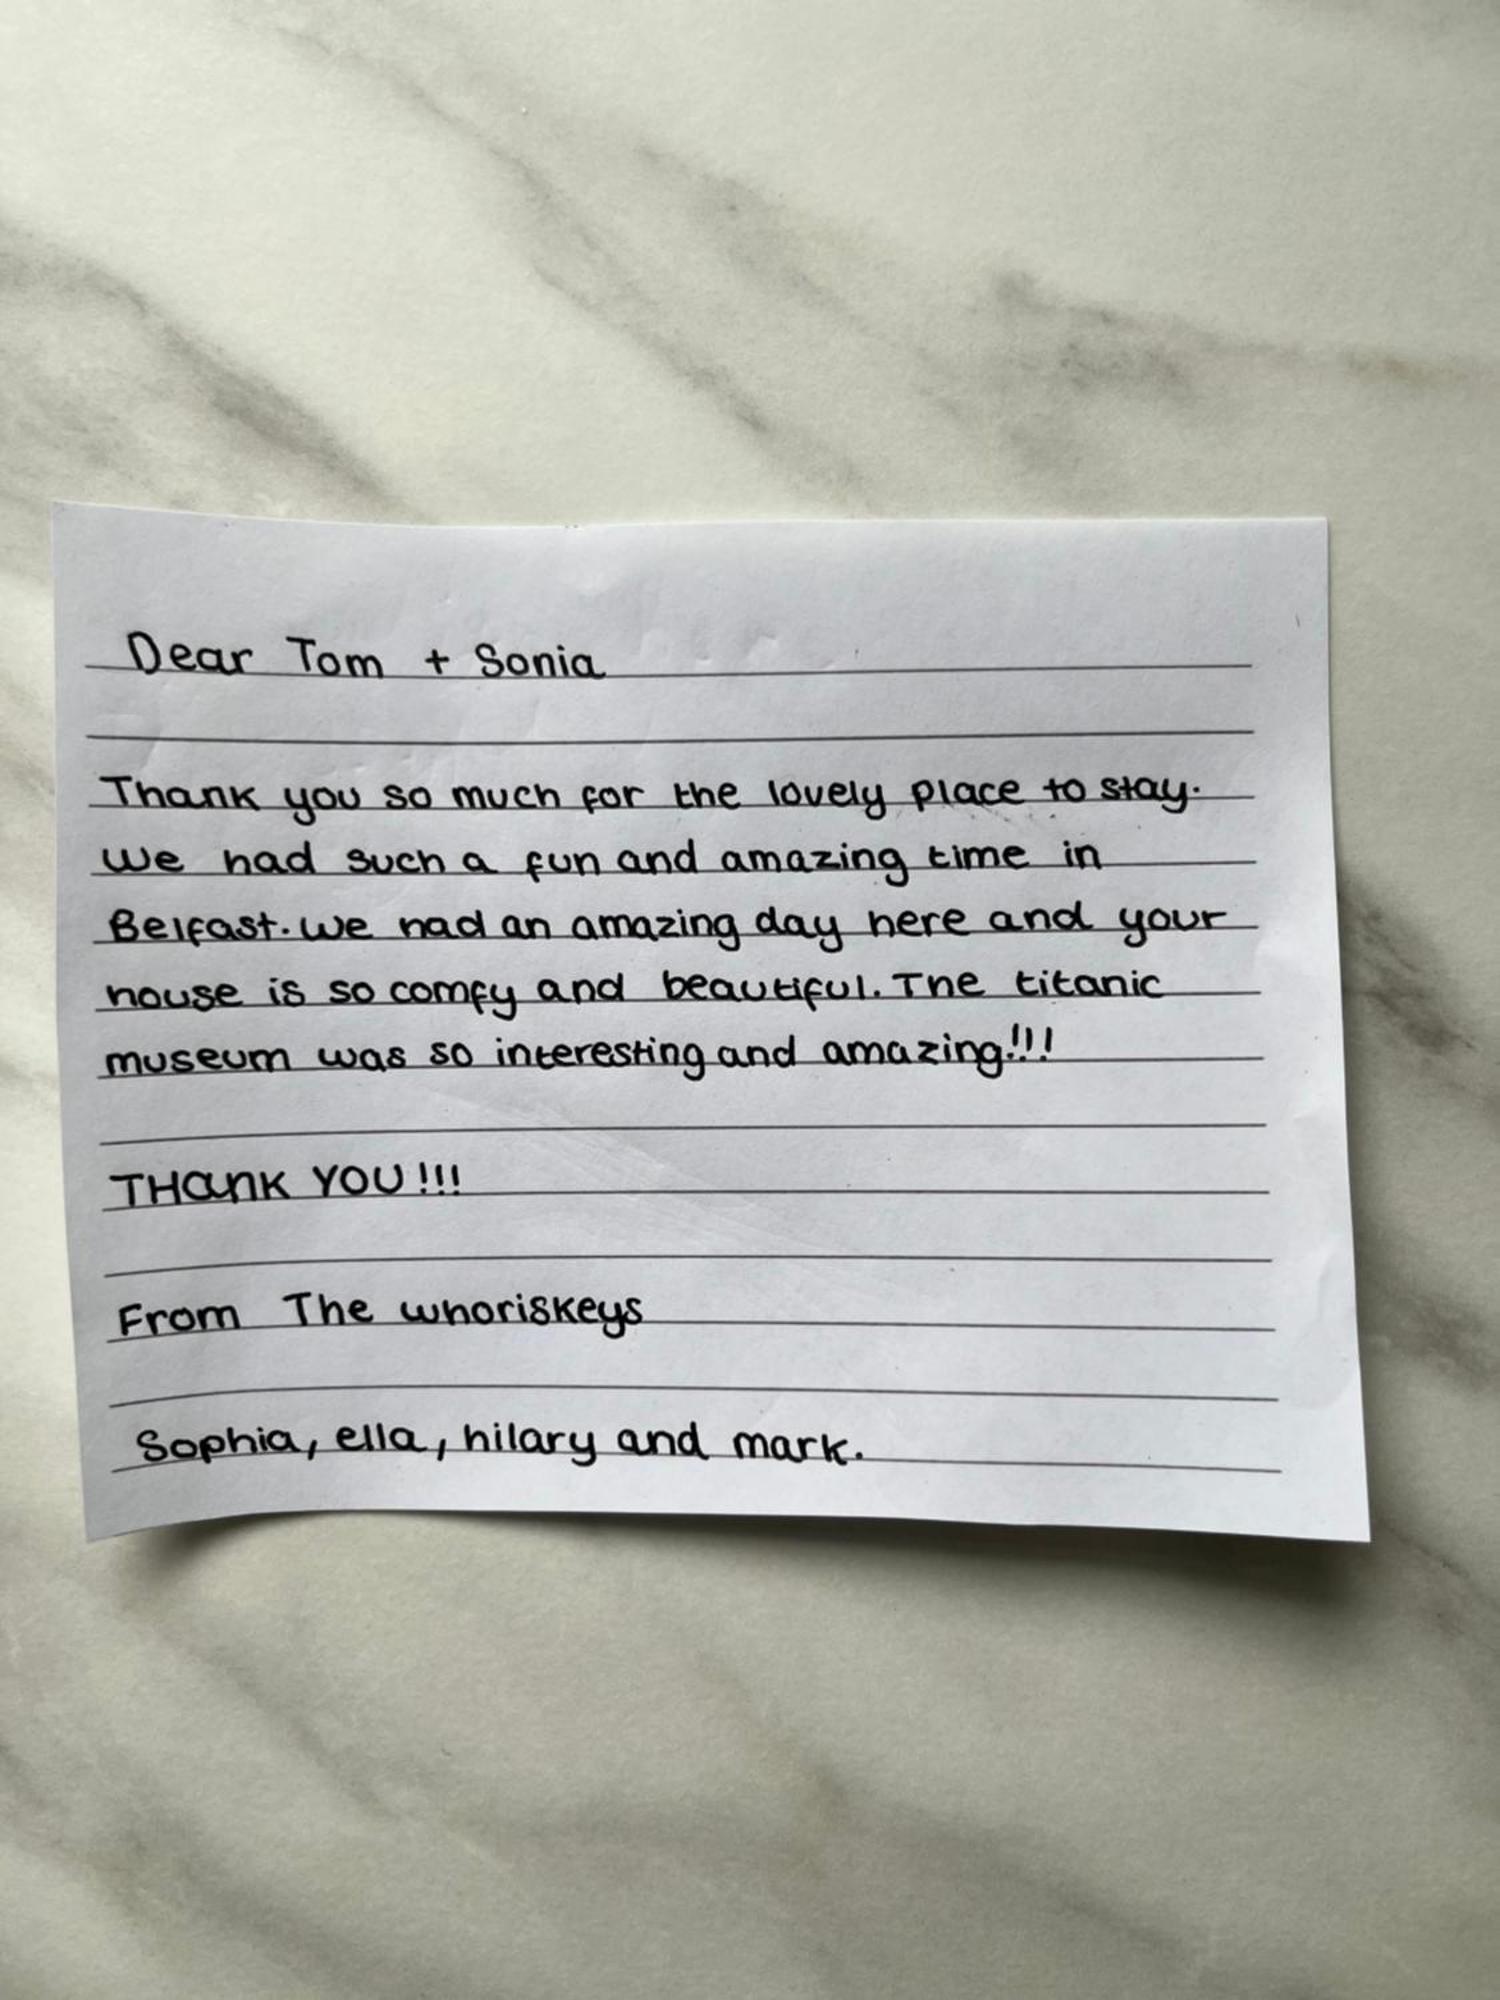 Dear Tom + Sonia
Thank you so much for the lovely place to stay.
We had such a fun and amazing time in
Belfast. We had an amazing day here and your
house is so comfy and beautiful. The titanic
museum was so interesting and amazing!!!
THANK YOU!!!
From The whoriskeys
Sophia, ella, hilary and mark.